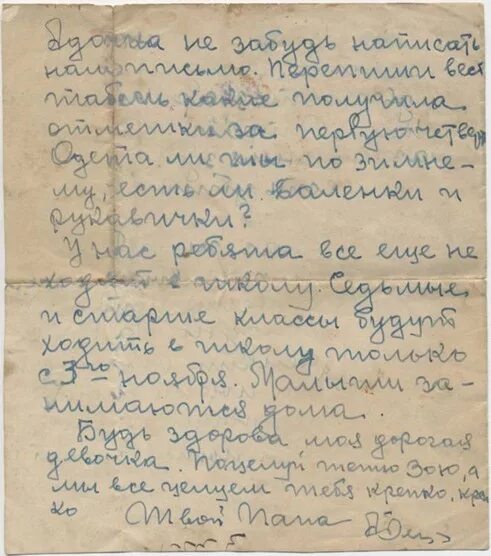 не забудь написать
нам письмо. Перепиши весь
табель какие получила
отметки за первую четвер
Одета ли ты по зимне-
му, есть ли валенки и
рукавички?
У нас ребята все еще не
ходят в школу. Седьмые
и старшие классы будут
ходить в школу только
с 3го ноября. Малыши за-
нимаются дома.
Будь здорова моя дорогая
девочка. Поцелуй тетю Зою, а
мы все целуем тебя крепко, креп
ко
Твой Папа